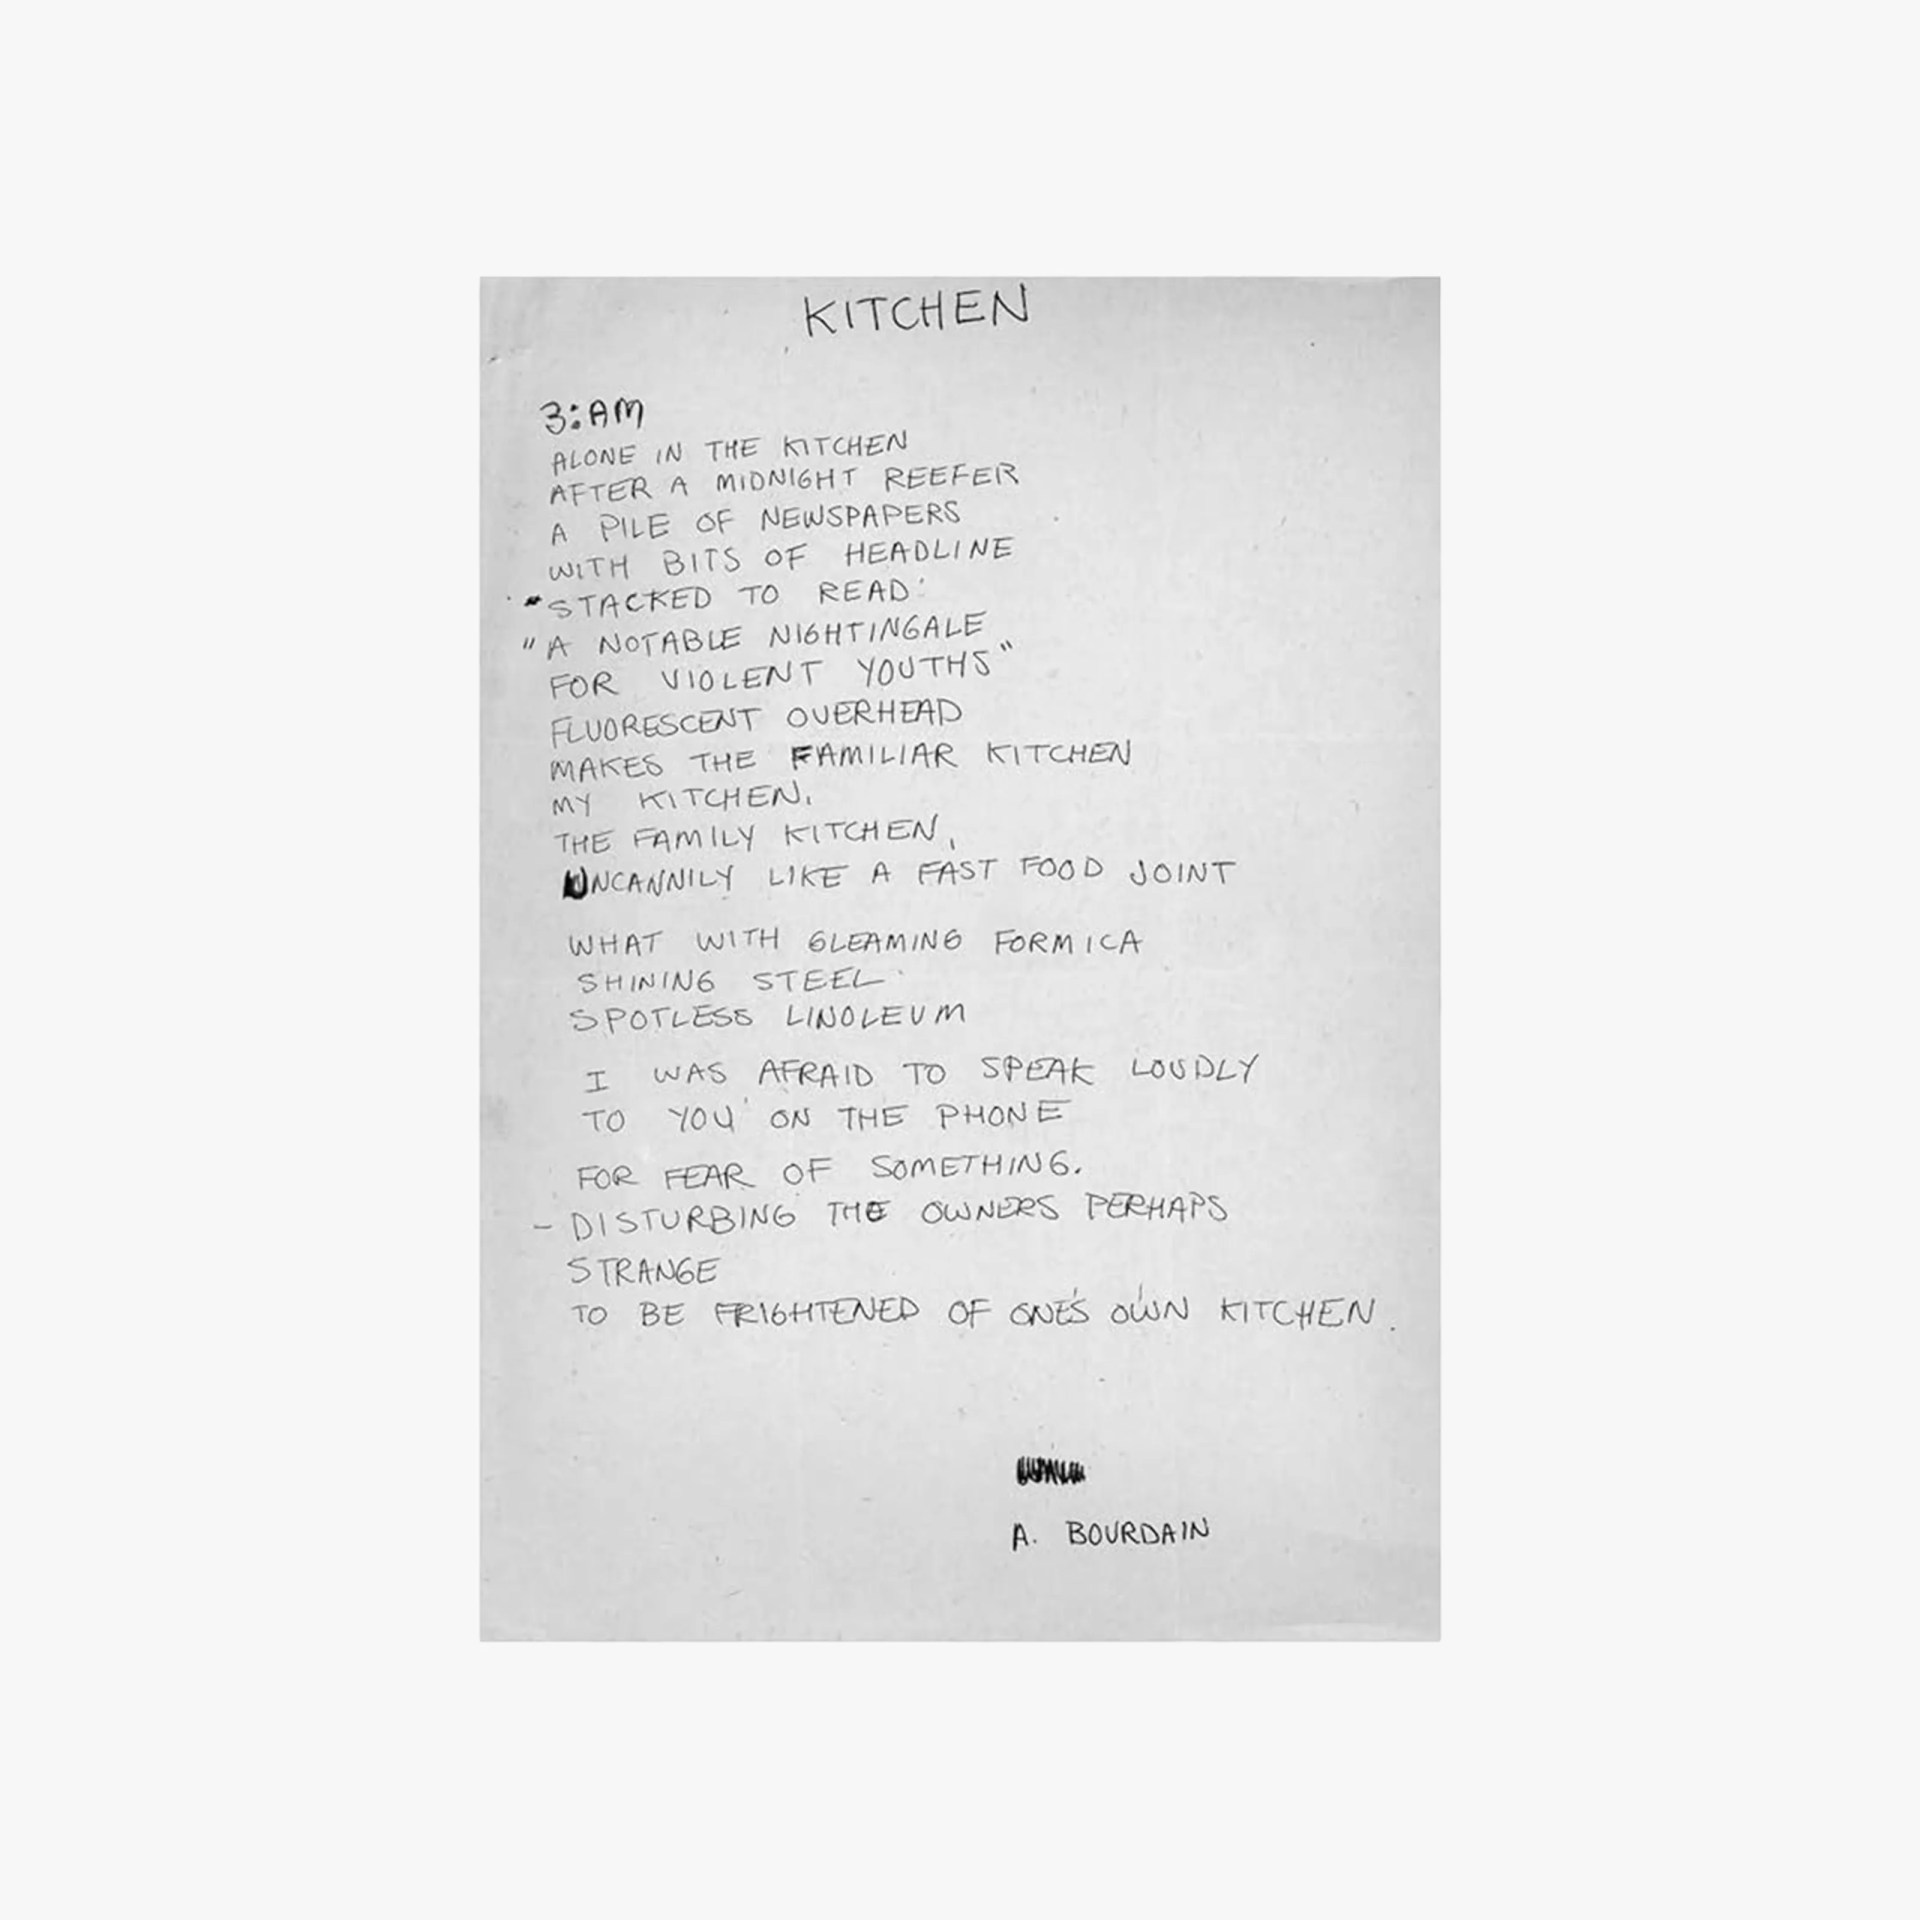 KITCHEN
3:AM
ALONE IN THE KITCHEN
AFTER A MIDNIGHT REEFER
A PILE OF NEWSPAPERS
WITH BITS OF HEADLINE
STACKED TO READ:
"A NOTABLE NIGHTINGALE
FOR VIOLENT YOUTHS"
FLUORESCENT OVERHEAD
MAKES THE FAMILIAR KITCHEN
MY KITCHEN,
THE FAMILY KITCHEN,
UNCANNILY LIKE A FAST FOOD JOINT
WHAT WITH GLEAMING FORMICA
SHINING STEEL
SPOTLESS LINOLEUM
I WAS AFRAID TO SPEAK LOUDLY
TO YOU ON THE PHONE
FOR FEAR OF SOMETHING.
- DISTURBING THE OWNERS PERHAPS
STRANGE
TO BE FRIGHTENED OF ONE'S OWN KITCHEN.
A. BOURDAIN